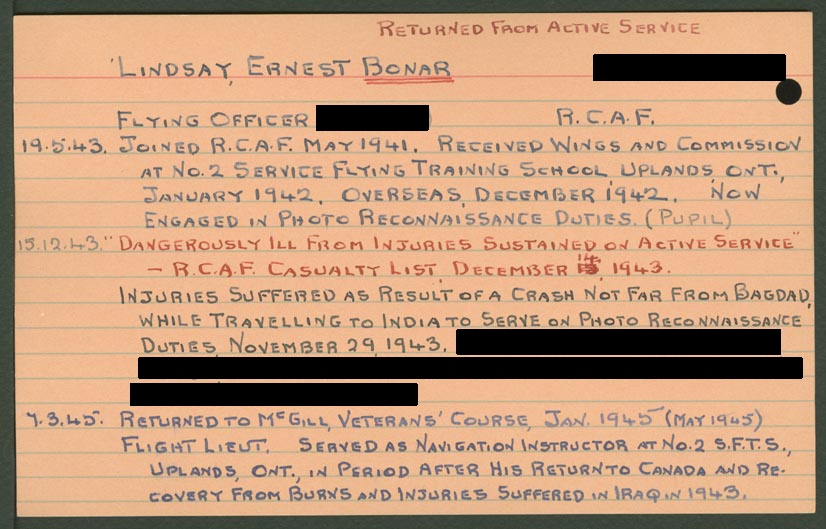 RETURNED FROM ACTIVE SERVICE
LINDSAY, ERNEST BONAR
FLYING OFFICER R.C.A.F.
19.5.43. JOINED R.C.A.F. MAY 1941. RECEIVED WINGS AND COMMISSION
AT NO. 2 SERVICE FLYING TRAINING SCHOOL UPLANDS, ONT.,
JANUARY 1942. OVERSEAS, DECEMBER 1942. NOW
ENGAGED IN PHOTO RECONNAISSANCE DUTIES. (PUPIL)
15.12.43. "DANGEROUSLY ILL FROM INJURIES SUSTAINED ON ACTIVE SERVICE"
– R.C.A.F. CASUALTY LIST, DECEMBER 14, 1943.
INJURIES SUFFERED AS RESULT OF A CRASH NOT FAR FROM BAGDAD,
WHILE TRAVELLING TO INDIA TO SERVE ON PHOTO RECONNAISSANCE
DUTIES, NOVEMBER 29, 1943.
7.3.45. RETURNED TO McGILL, VETERANS' COURSE, JAN. 1945 (MAY 1945)
FLIGHT LIEUT. SERVED AS NAVIGATION INSTRUCTOR AT NO. 2 S.F.T.S.,
UPLANDS, ONT., IN PERIOD AFTER HIS RETURN TO CANADA AND RE-
COVERY FROM BURNS AND INJURIES SUFFERED IN IRAQ IN 1943.